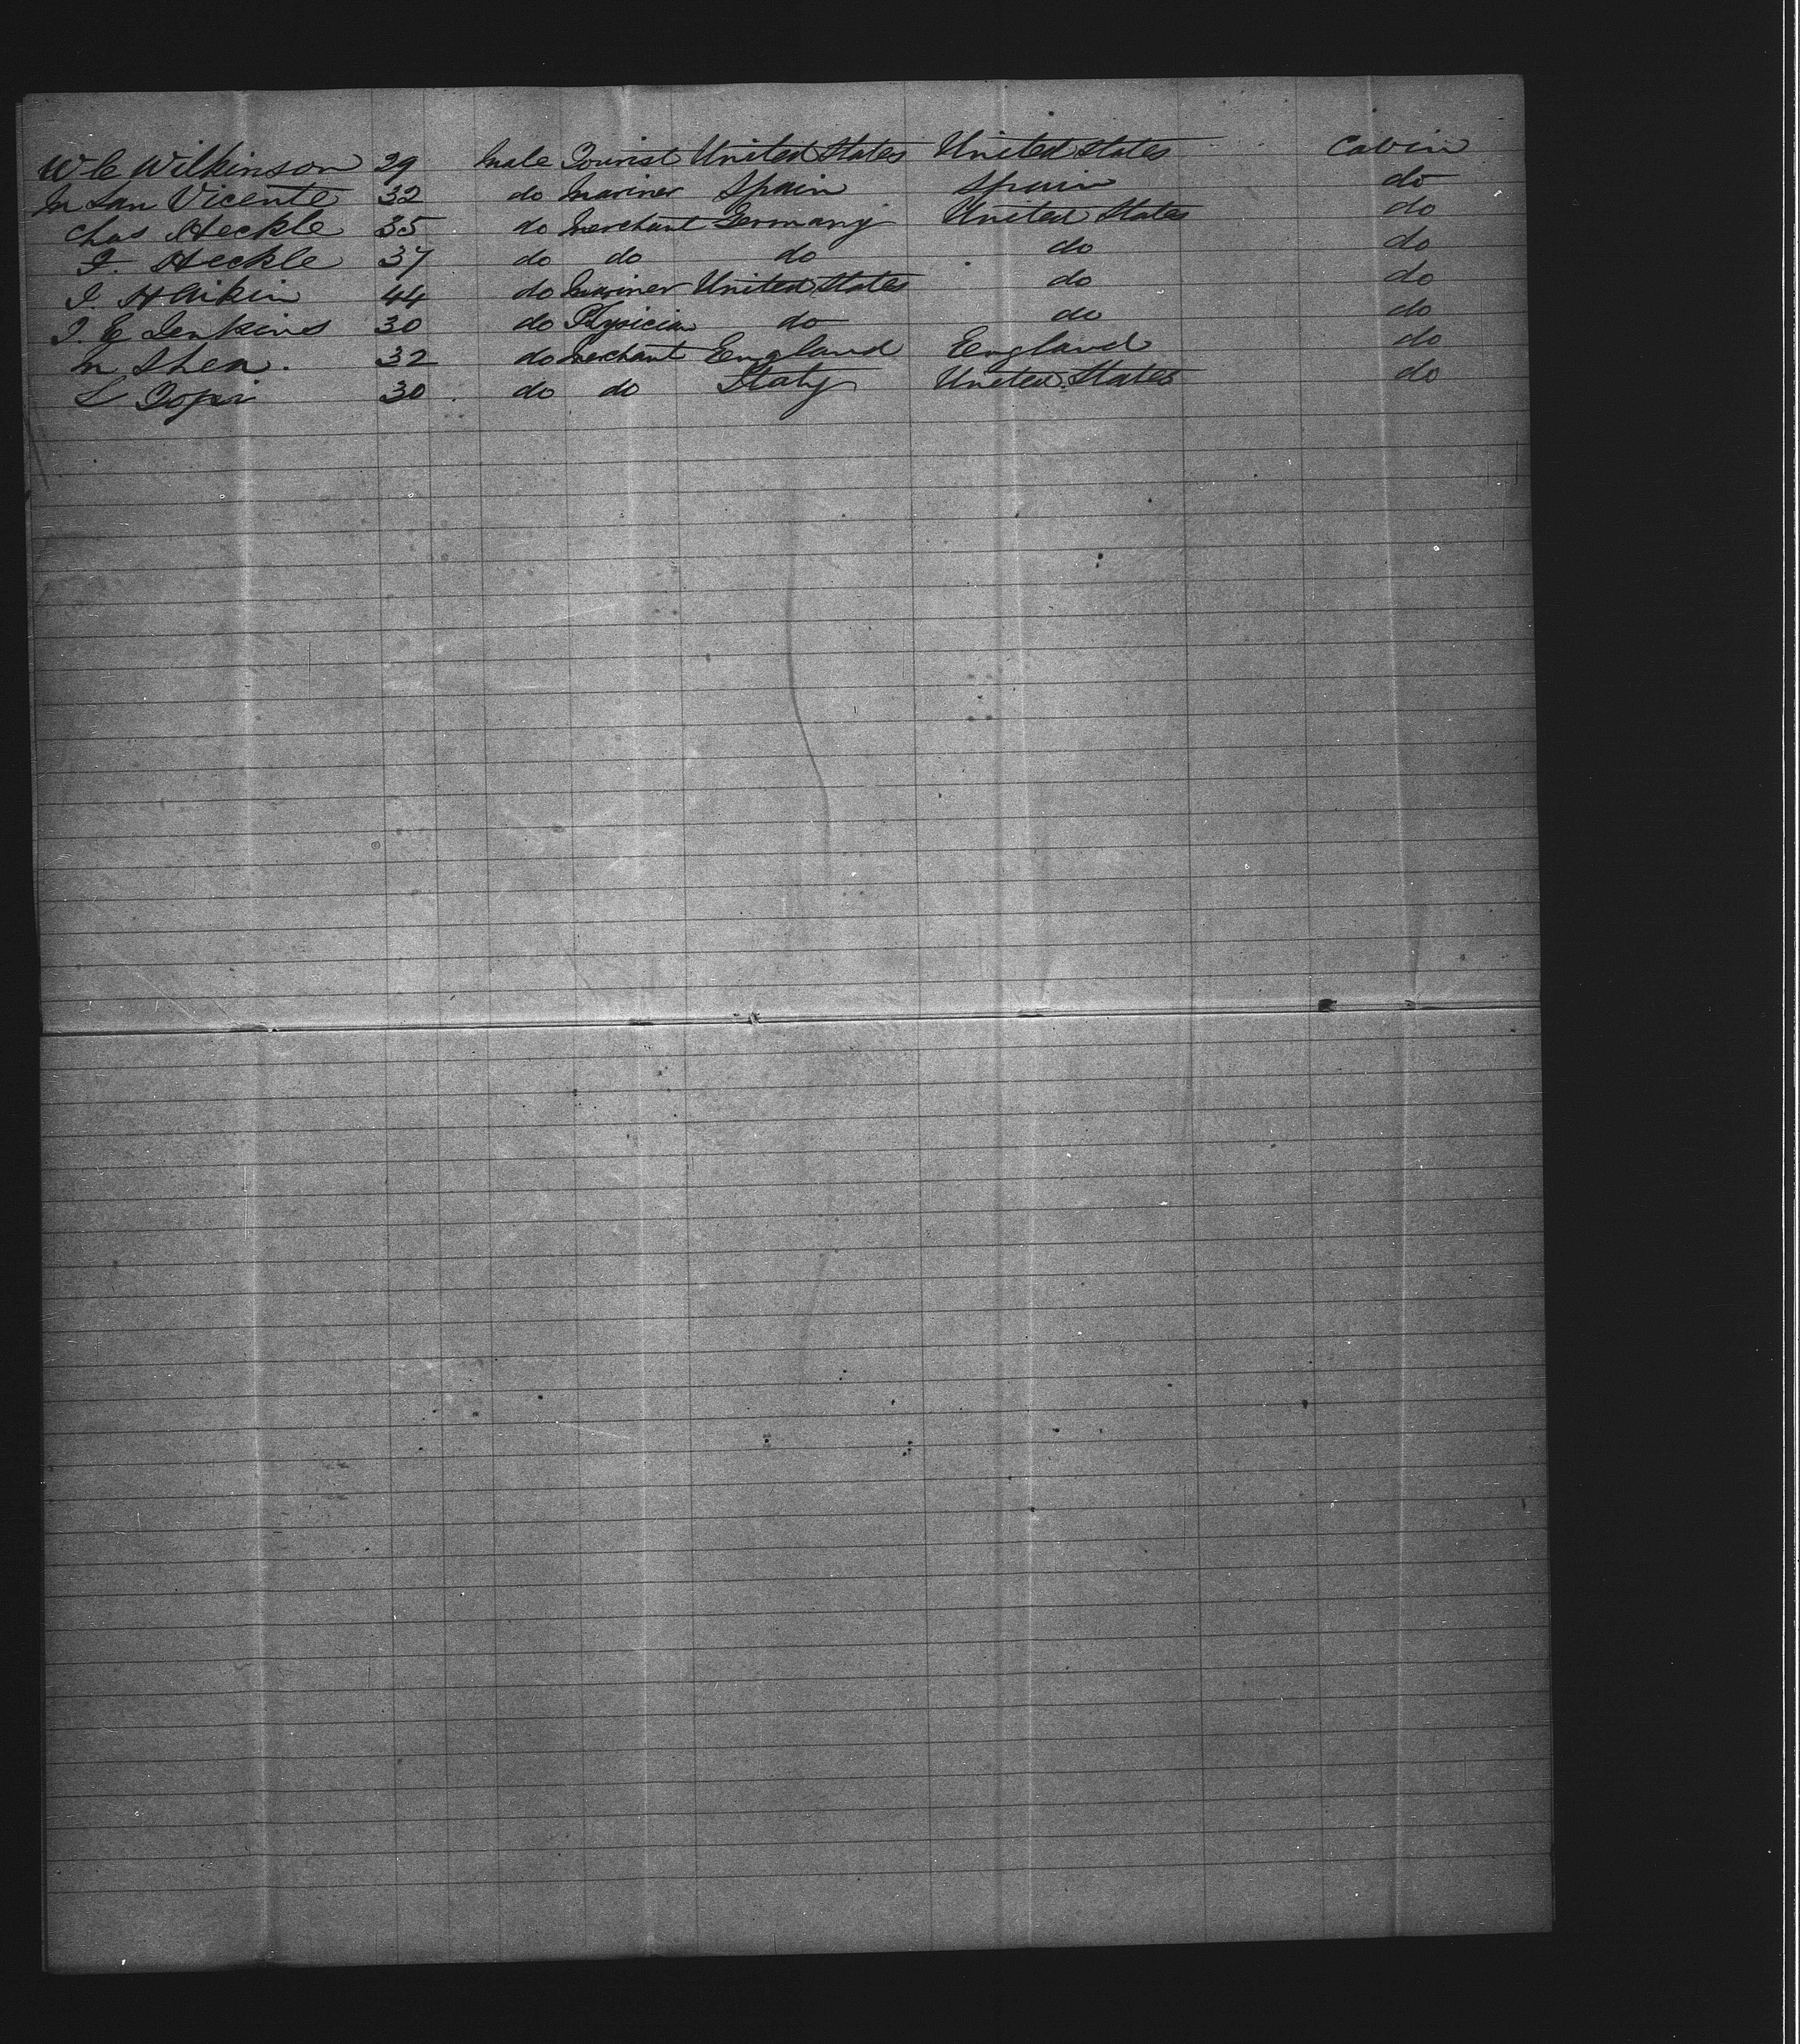 W C Wilkinson 29 Male Tourist United States United States Cabin
M San Vicente 32 do Mariner Spain Spain do
Chas Heckle 35 do Merchant Germany United States do
I. Heckle 37 do do do do do
I H Aikin 44 do Mariner United States do do
I. E Jenkins 30 do Physician do do do
M Shea. 32 do Merchant England England do
L Topi 30 do do Italy United States do